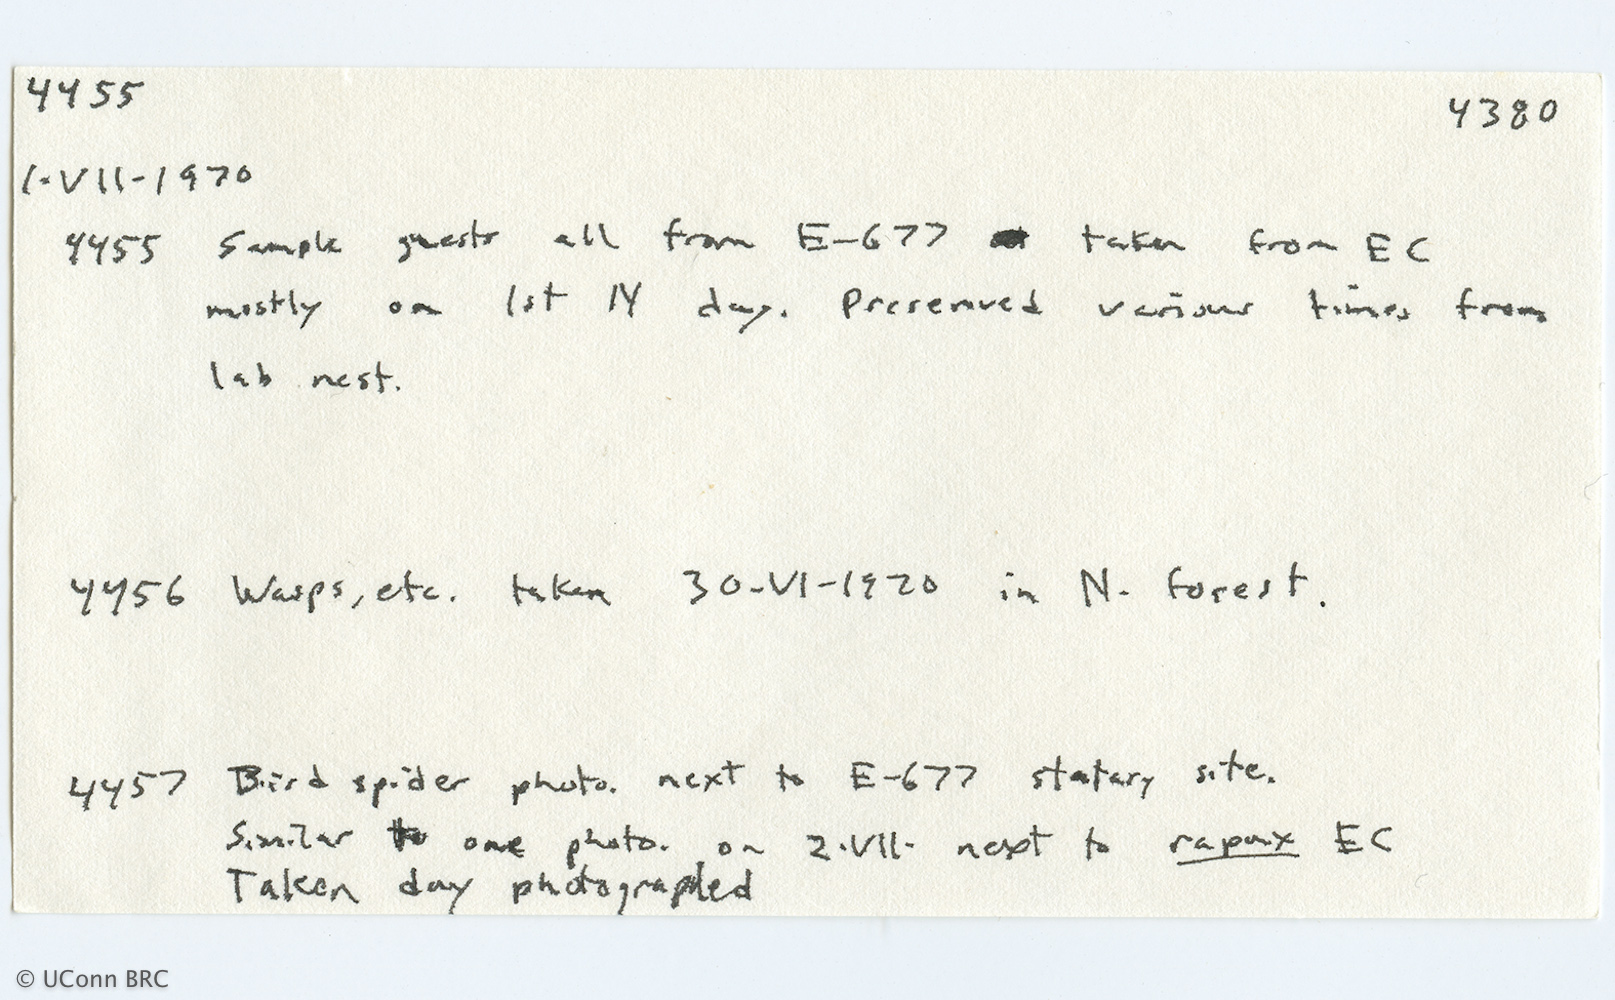 4455
4380
1-VII-1970
4455 Sample guests all from E-677 taken from EC
mostly on 1st N day. Preserved various times from
lab nest.
4456 Wasps, etc. taken 30-VI-1970 in N. forest.
4457 Bird spider photo. next to E-677 statary site.
Similar to one photo. on 2-VII- next to rapax EC
Taken day photographed
© UConn BRC